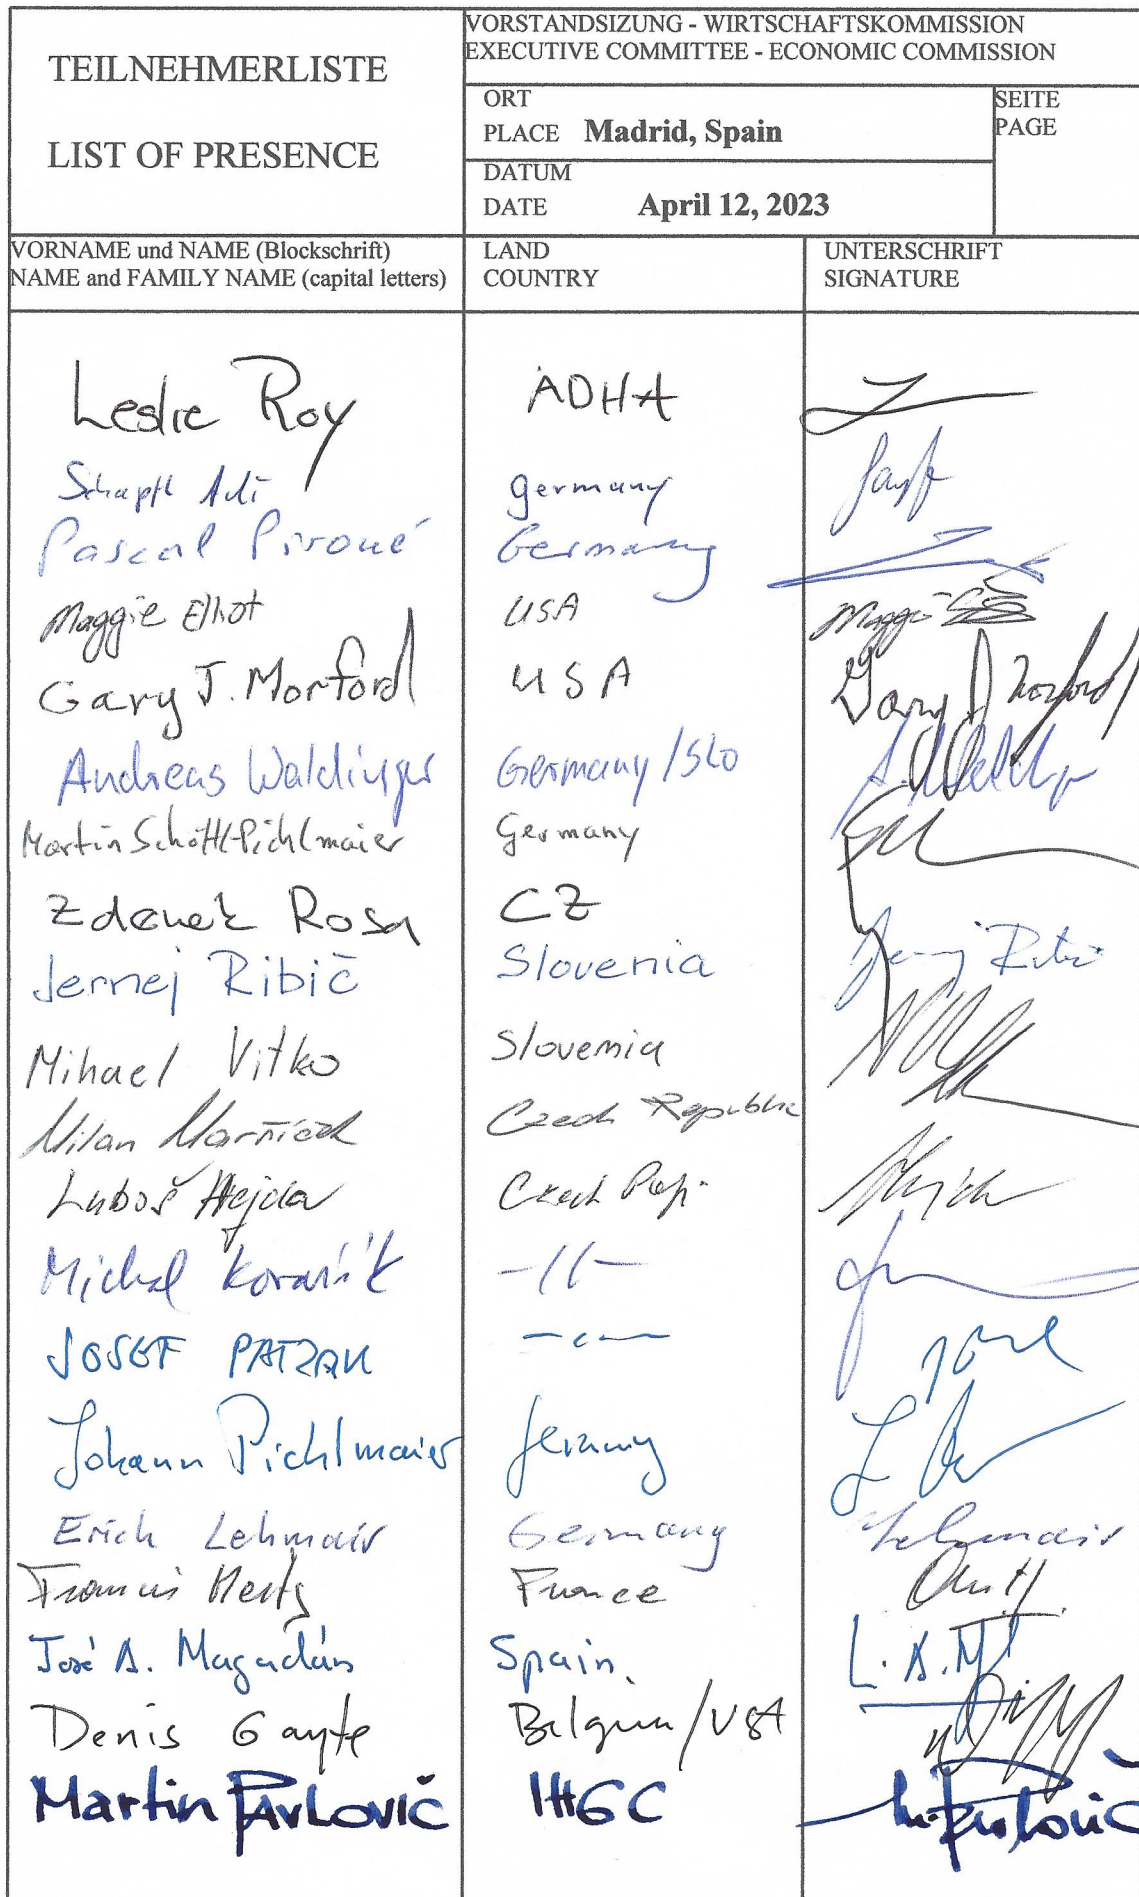 TEILNEHMERLISTE
LIST OF PRESENCE
VORSTANDSIZUNG - WIRTSCHAFTSKOMMISSION
EXECUTIVE COMMITTEE - ECONOMIC COMMISSION
ORT
PLACE Madrid, Spain
SEITE
PAGE
DATUM
DATE April 12, 2023
VORNAME und NAME (Blockschrift)
NAME and FAMILY NAME (capital letters)
LAND
COUNTRY
UNTERSCHRIFT
SIGNATURE
Leslie Roy ADHA
germany
Pascal Piroué Germany
Maggie Elliot USA Maggie
Gary J. Morford USA Gary J Morford
Andreas Waldinger Germany/SLO
Martin Schöttl-Pichlmaier Germany
Zdenek Rosa CZ
Jernej Ribič Slovenia Jernej Ribič
Mihael Vitko Slovenia
Milan Czech Republic
Luboš Hejda Czech Rep.
Michal Kovařík -//-
JOSEF PATZAK
Johann Pichlmaier Germany
Erich Lehmair Germany Lehmair
Francis Hertz France
José A. Magadán Spain
Denis Gayte Belgium/USA
Martin PAVLOVIČ IHGC M. Pavlovič